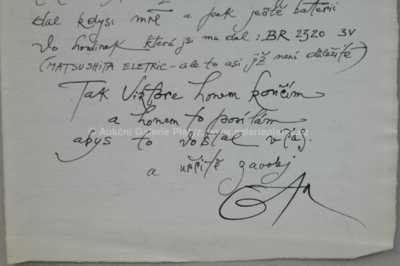 dal kdysi mně a pak ještě baterii
do hodinek která jsi mu dal: BR 2320 3V
(MATSUSHITA ELETRIC - ale to asi již není důležité)
Tak Viktore honem končím
a honem to posílám
© Aukční Galerie Platýz
abys to dostal včas.
a určitě zavolej